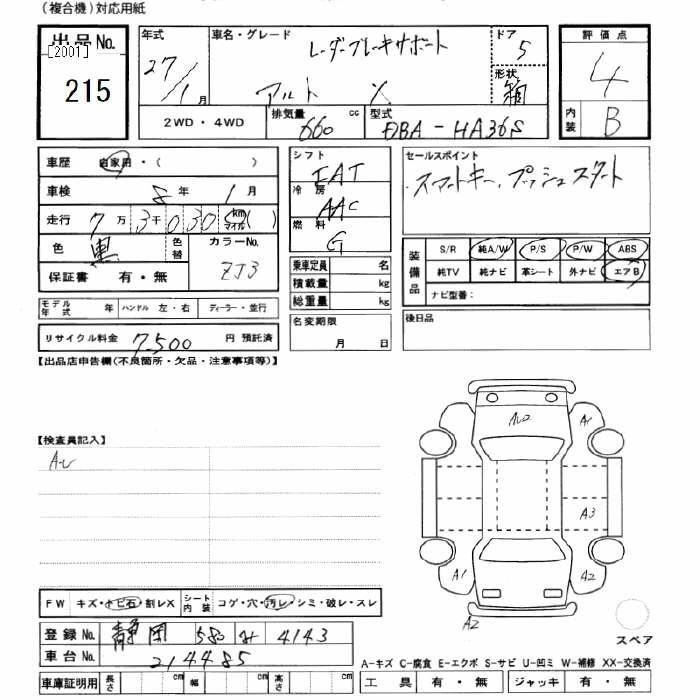 (複合機)対応用紙
出品No. [2001] 215
年式 27/1月
車名・グレード レーダーブレーキサポート アルト X
ドア 5
形状 箱
評価点 4
内装 B
2WD・4WD
排気量 660 cc
型式 DBA-HA36S
車歴 自家用・( )
車検 8年 1月
走行 7万 3千 0 30 km マイル ( )
色 黒 色替
カラーNo. ZJ3
保証書 有・無
モデル年式 年 ハンドル 左・右 ディーラー・並行
リサイクル料金 7,500 円 預託済
シフト IAT
冷房 AAC
燃料 G
乗車定員 名
積載量 kg
総重量 kg
名変期限 月 日
セールスポイント
・スマートキー、プッシュスタート
装備品 S/R 純A/W P/S P/W ABS
純TV 純ナビ 革シート 外ナビ エアB
ナビ型番:
後日品
【出品店申告欄(不良箇所・欠品・注意事項等)】
【検査員記入】
A1
A3
A1 A2
A2
スペア
FW キズ・トビ石・割レX シート内装 コゲ・穴・汚レ・シミ・破レ・スレ
登録No. 静岡 580 4143
車台No. 214485
車庫証明用 長さ cm 幅 cm 高さ cm
A-キズ C-腐食 E-エクボ S-サビ U-凹ミ W-補修 XX-交換済
工具 有・無 ジャッキ 有・無